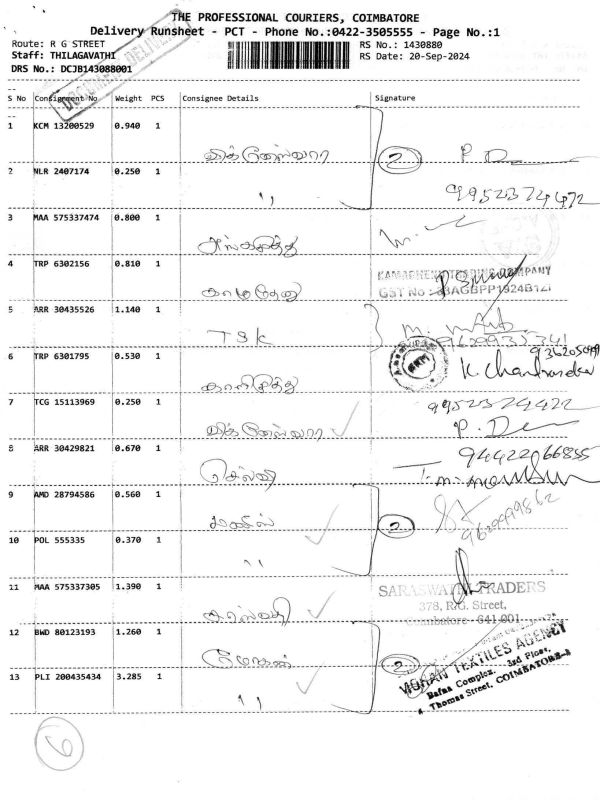 THE PROFESSIONAL COURIERS, COIMBATORE
Delivery Runsheet - PCT - Phone No.:0422-3505555 - Page No.:1
Route: R G STREET
RS No.: 1430880
Staff: THILAGAVATHI
RS Date: 20-Sep-2024
DRS No.: DCJB143088001
DOCUMENT DELIVERY
S No Consignment No Weight PCS Consignee Details Signature
1 KCM 13200529 0.940 1
விக்னேஸ்வரா 2
2 NLR 2407174 0.250 1
" 9952374472
3 MAA 575337474 0.800 1
4 TRP 6302156 0.810 1
KAMADHENU TRADING COMPANY
GST No : 33AGBPP1924B1ZI
காமதேனு
5 ARR 30435526 1.140 1
TSK 9629935341
6 TRP 6301795 0.530 1
K. Chandrasekar
7 TCG 15113969 0.250 1
9952374422
விக்னேஸ்வரா P. De
8 ARR 30429821 0.670 1
9442266855
செல்வி
9 AMD 28794586 0.560 1
2 9629999862
10 POL 555335 0.370 1
"
11 MAA 575337305 1.390 1
SARASWATHI TRADERS
378, R.G. Street,
Coimbatore - 641 001
12 BWD 80123193 1.260 1
மோகன் 2
MOHAN TEXTILES AGENCY
Bafna Complex, 3rd Floor,
Thomas Street, COIMBATORE-1
13 PLI 200435434 3.285 1
"
6